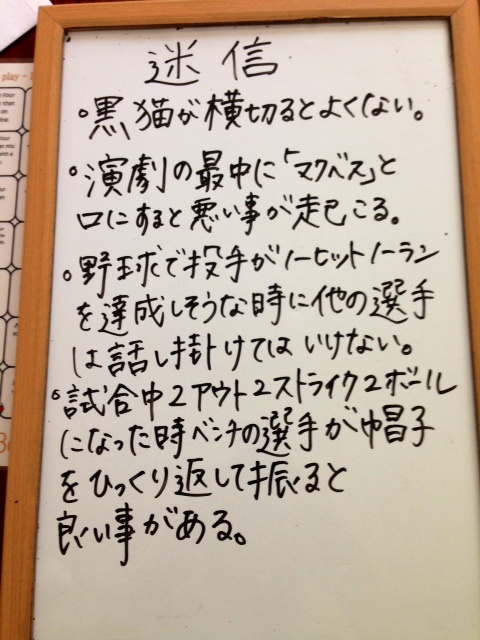 迷信
。黒猫が横切るとよくない。
。演劇の最中に「マクベス」と
口にすると悪い事が起こる。
。野球で投手がノーヒットノーラン
を達成しそうな時に他の選手
は話し掛けてはいけない。
。試合中2アウト2ストライク2ボール
になった時ベンチの選手が帽子
をひっくり返して振ると
良い事がある。
play -